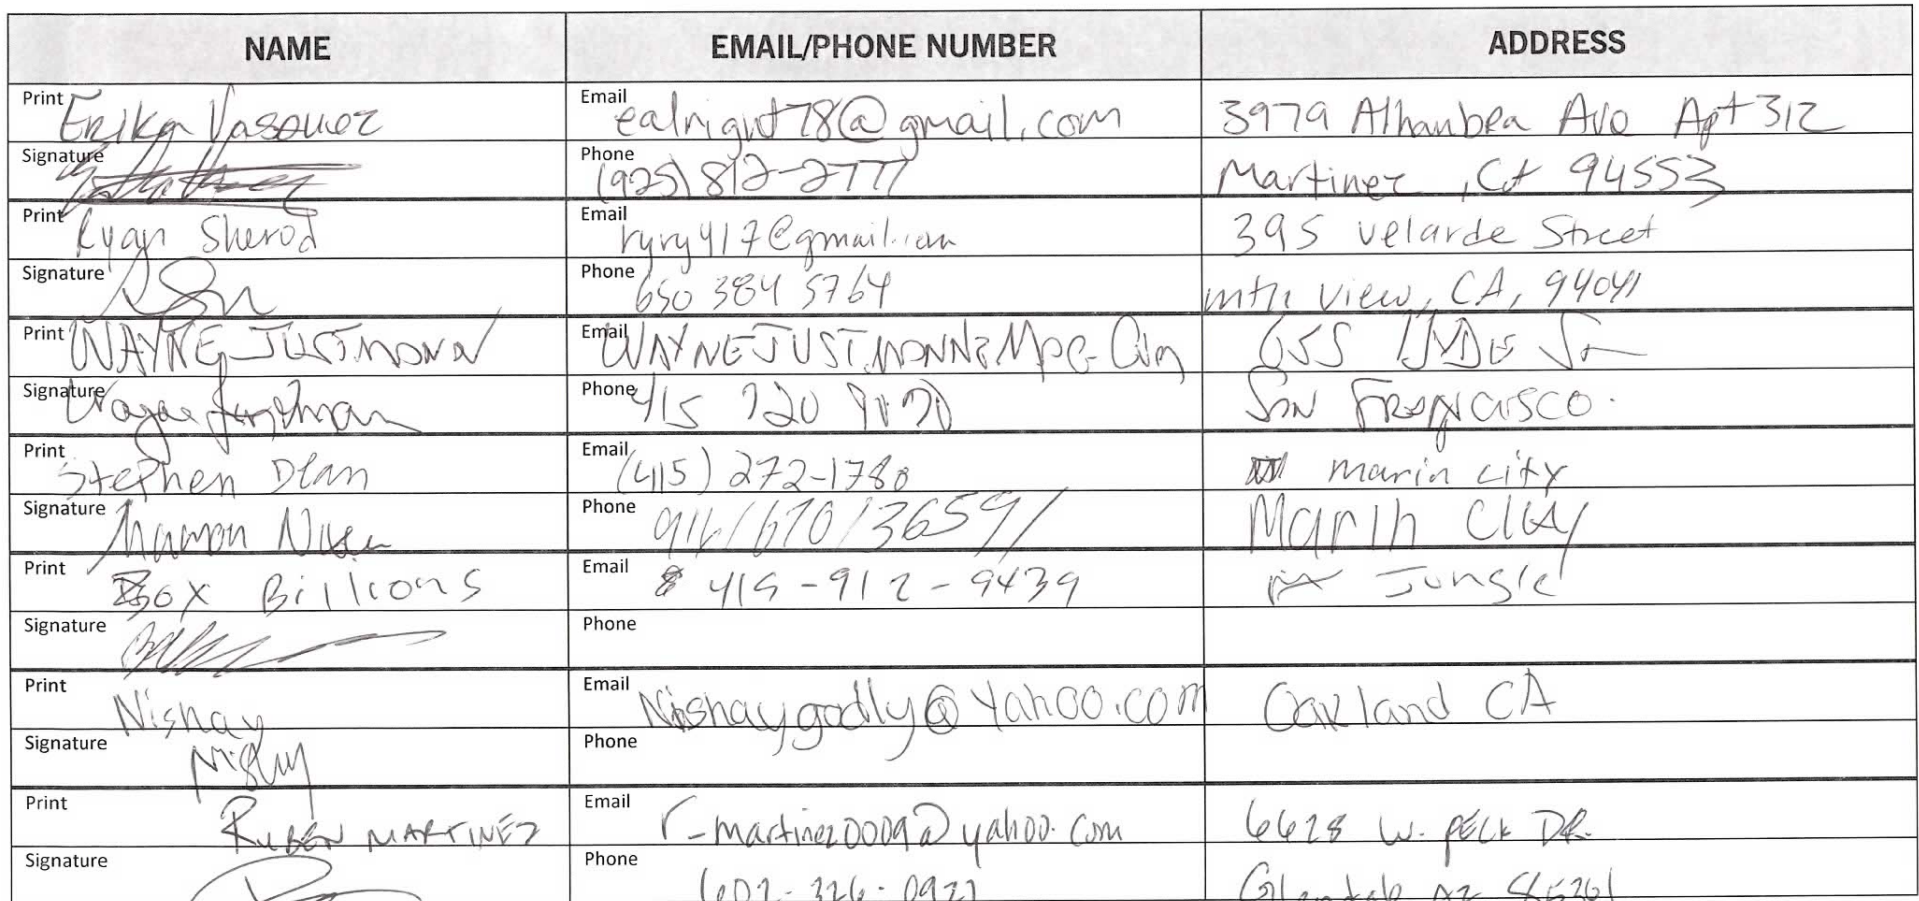 NAME EMAIL/PHONE NUMBER ADDRESS
Print Erika Vasquez Email ealright78@gmail.com 3979 Alhanbra Ave Apt 312
Signature Phone (925) 812-2777 Martinez, CA 94553
Print Ryan Sherod Email ryry417@gmail.com 395 Velarde Street
Signature Phone 650 384 5764 mtn View, CA, 94041
Print WAYNE JUSTMANN Email 655 HYDE St
Signature Phone 415 San Francisco.
Print Stephen Dean Email (415) 272-1780 marin city
Signature Phone 916/670/3659/ Marin City
Print Box Billions Email 415-912-9439 Jungle
Signature Phone
Print Nishay Email Nishaygodly@Yahoo.com Oakland CA
Signature Phone
Print RUBEN MARTINEZ Email r-martinez0009@yahoo.com 6628 W. PECK DR.
Signature Phone 602-326-0921 Glendale AZ